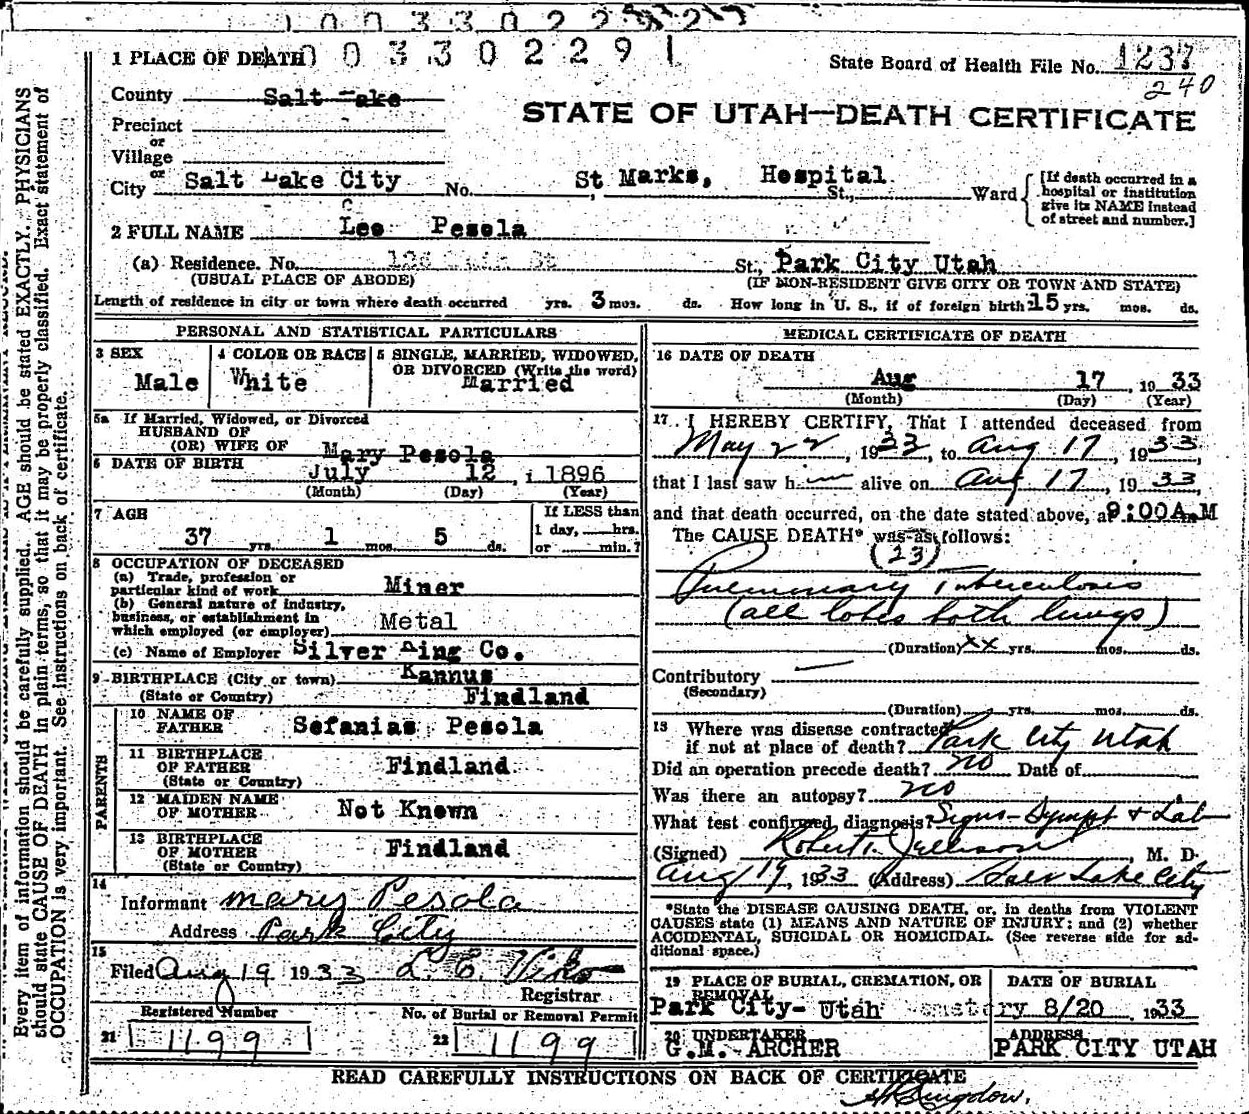 1003302291
1 PLACE OF DEATH
State Board of Health File No. 1237
240
County Salt Lake
STATE OF UTAH—DEATH CERTIFICATE
Precinct
or
Village
or
City Salt Lake City No. St Marks, Hospital St., Ward
[If death occurred in a hospital or institution give its NAME instead of street and number.]
2 FULL NAME Leo Pesola
(a) Residence. No. St., Park City Utah
(USUAL PLACE OF ABODE) (IF NON-RESIDENT GIVE CITY OR TOWN AND STATE)
Length of residence in city or town where death occurred yrs. 3 mos. ds. How long in U. S., if of foreign birth 15 yrs. mos. ds.
PERSONAL AND STATISTICAL PARTICULARS
3 SEX
Male
4 COLOR OR RACE
White
5 SINGLE, MARRIED, WIDOWED,
OR DIVORCED (Write the word)
Married
5a If Married, Widowed, or Divorced
HUSBAND OF
(OR) WIFE OF Mary Pesola
6 DATE OF BIRTH July 12, 1896
(Month) (Day) (Year)
7 AGE
37 yrs. 1 mos. 5 ds.
If LESS than
1 day, hrs.
or min.?
8 OCCUPATION OF DECEASED
(a) Trade, profession or
particular kind of work Miner
(b) General nature of industry,
business, or establishment in
which employed (or employer) Metal
(c) Name of Employer Silver King Co.
9 BIRTHPLACE (City or town) Kannus
(State or Country) Findland
PARENTS
10 NAME OF
FATHER Sefanias Pesola
11 BIRTHPLACE
OF FATHER Findland
(State or Country)
12 MAIDEN NAME
OF MOTHER Not Known
13 BIRTHPLACE
OF MOTHER Findland
(State or Country)
14
Informant Mary Pesola
Address Park City
15
Filed Aug 19 1933 L. E.
Registrar
Registered Number No. of Burial or Removal Permit
21 1199 22 1199
MEDICAL CERTIFICATE OF DEATH
16 DATE OF DEATH
Aug 17, 1933
(Month) (Day) (Year)
17 I HEREBY CERTIFY, That I attended deceased from
May 22, 1933, to Aug 17, 1933,
that I last saw him alive on Aug 17, 1933,
and that death occurred, on the date stated above, at 9:00A.M
The CAUSE DEATH* was as follows:
(23)
Pulmonary Tuberculosis
(all lobes both lungs)
(Duration) xx yrs. mos. ds.
Contributory —
(Secondary)
(Duration) yrs. mos. ds.
18 Where was disease contracted
if not at place of death? Park City Utah
Did an operation precede death? no Date of
Was there an autopsy? no
What test confirmed diagnosis? Signs-Sympt & Lab
(Signed) Robert T. Jellison, M. D.
Aug 19, 1933 (Address) Salt Lake City
*State the DISEASE CAUSING DEATH, or, in deaths from VIOLENT
CAUSES state (1) MEANS AND NATURE OF INJURY; and (2) whether
ACCIDENTAL, SUICIDAL OR HOMICIDAL. (See reverse side for ad-
ditional space.)
19 PLACE OF BURIAL, CREMATION, OR
REMOVAL
DATE OF BURIAL
Park City- Utah Cemetery 8/20, 1933
20 UNDERTAKER
G.M. ARCHER
ADDRESS
PARK CITY UTAH
READ CAREFULLY INSTRUCTIONS ON BACK OF CERTIFICATE
Every item of information should be carefully supplied. AGE should be stated EXACTLY. PHYSICIANS
should state CAUSE OF DEATH in plain terms, so that it may be properly classified. Exact statement of
OCCUPATION is very important. See instructions on back of certificate.